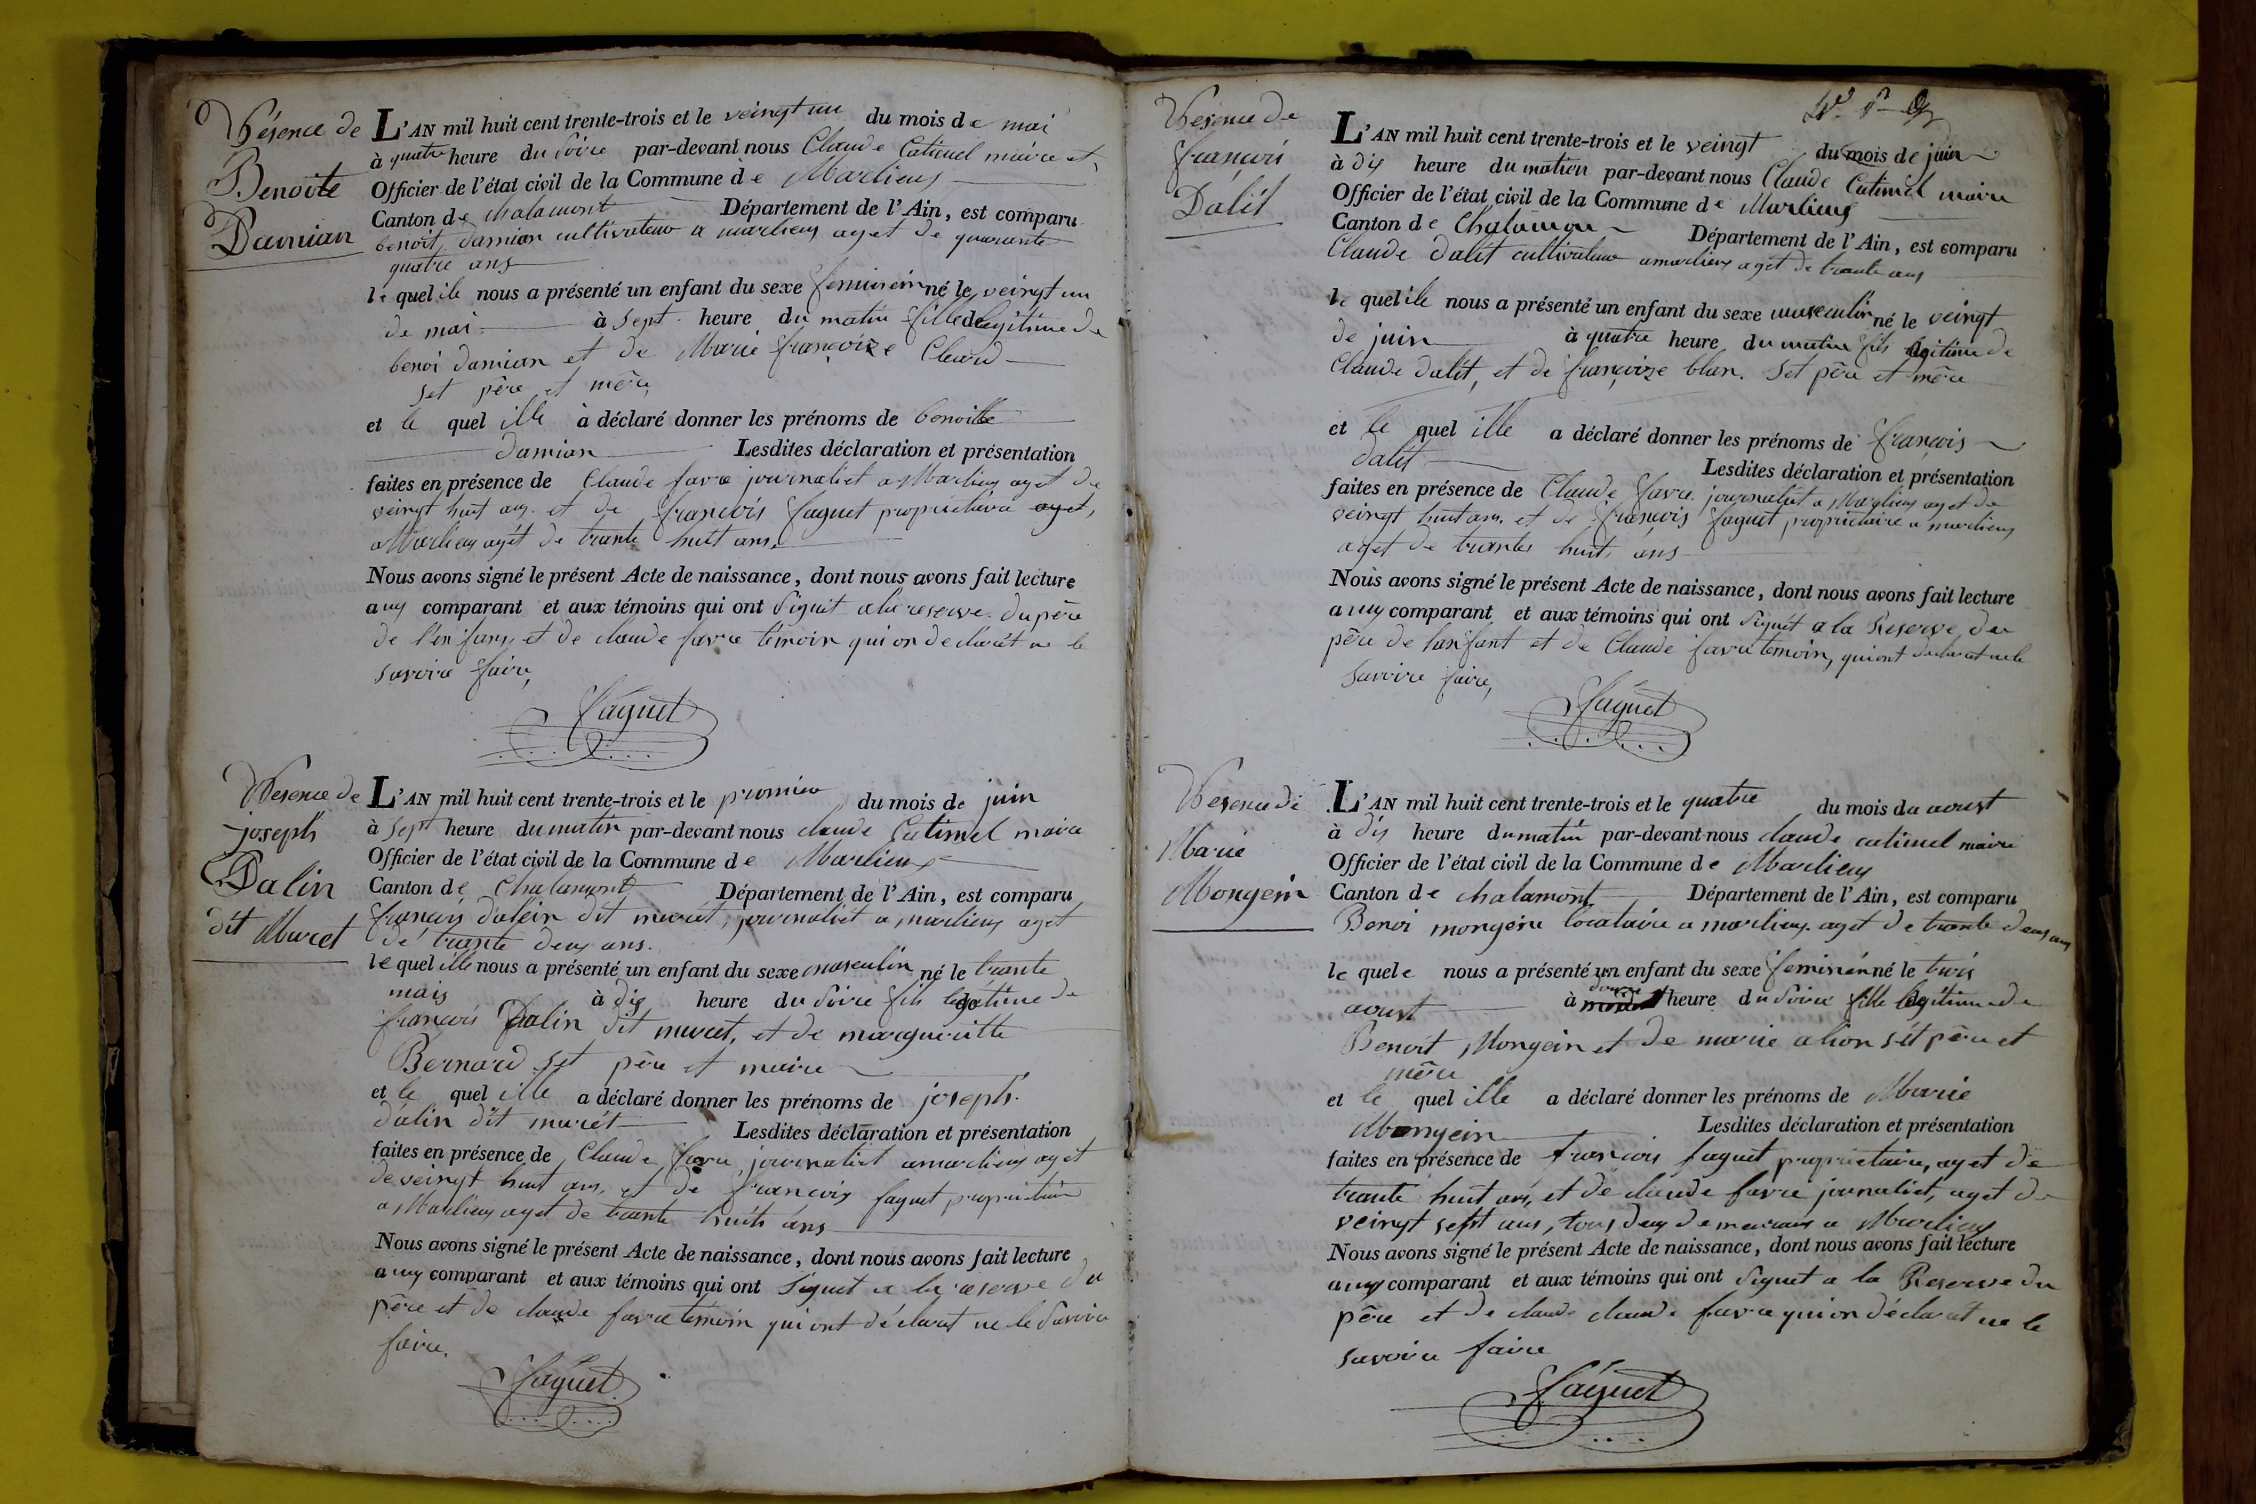 Nésence de
Benoite
Damian
L'AN mil huit cent trente-trois et le veingt un du mois de mai
à quatre heure du soire par-devant nous Claude Catimel maire et
Officier de l'état civil de la Commune de Marlieux
Canton de chalamont Département de l'Ain, est comparu
benoit damian cultivateur a marlieux aget de quarante
quatre ans
le quel ile nous a présenté un enfant du sexe feminein né le veingt un
de mai à sept heure du matin fille legitime de
benoi damian et de Marie françoize Cleard
set père et mère
et le quel ille à déclaré donner les prénoms de benoitte
damian Lesdites déclaration et présentation
faites en présence de Claude favre journaliet a Marlieux aget de
veingt huit ans. et de françois faguet proprietaire aget,
a Marlieux agét de trante huit ans.
Nous avons signé le présent Acte de naissance, dont nous avons fait lecture
aux comparant et aux témoins qui ont Signét a la reserve du père
de l'enfans et de claude favre témoin qui on declarét ne le
savoire faire,
faguet
Nesence de
joseph
Dalin
dit Muret
L'AN mil huit cent trente-trois et le promier du mois de juin
à sept heure du matin par-devant nous claude Catimel maire
Officier de l'état civil de la Commune de Marlieux
Canton de Chalamont Département de l'Ain, est comparu
françois dalein dit murét, journaliét a marlieux aget
de trante deux ans.
le quel ille nous a présenté un enfant du sexe masculin né le trante
mais à dix heure du soire fils legitime de
françois Dalin dit muret, et de margueritte
Bernard set père et maire
et le quel ille a déclaré donner les prénoms de joseph.
dalin dit murét Lesdites déclaration et présentation
faites en présence de Claude favre journaliet a marlieux aget
de veingt huit ans, et de françois faguet proprietaire
a Marlieux aget de trante huits ans
Nous avons signé le présent Acte de naissance, dont nous avons fait lecture
aux comparant et aux témoins qui ont signet a la reserve du
père et de claude favre témoin qui ont déclarat ne le Savoire
faire.
faguet
Nesence de
françois
Dalét
L'AN mil huit cent trente-trois et le veingt du mois de juin
à dix heure du matin par-devant nous Claude Catimel maire
Officier de l'état civil de la Commune de Marlieux
Canton de Département de l'Ain, est comparu
Claude dalét cultivateur a marlieux aget de trante ans
le quel ile nous a présenté un enfant du sexe masculin né le veingt
de juin à quatre heure du matin fils legitime de
Claude dalét, et de françoize blan. Set père et mère
et le quel ille a déclaré donner les prénoms de françois
dalét Lesdites déclaration et présentation
faites en présence de Claude favre journaliet a Marlieux aget de
veingt huit ans. et de françois faguet proprietaire a marlieux
aget de trantes huit ans
Nous avons signé le présent Acte de naissance, dont nous avons fait lecture
aux comparant et aux témoins qui ont Signét a la Reserve du
père de lanfant et de Claude favre témoin, qui ont declarat ne le
Savoire faire,
faguet
Nesence de
Marie
Mongein
L'AN mil huit cent trente-trois et le quatre du mois da aoust
à dix heure du matin par-devant nous claude catimel maire
Officier de l'état civil de la Commune de Marlieux
Canton de chalamont Département de l'Ain, est comparu
Benoi mongein locataire a marlieux aget de trante deux ans
le quele nous a présenté un enfant du sexe feminén né le trois
aoust à heure du soire fille legitime de
Benoit Mongein et de marie alion sét père et
mère
et le quel ille a déclaré donner les prénoms de Marie
Mongein Lesdites déclaration et présentation
faites en présence de francois faguet proprietaire, aget de
trante huit ans, et de claude favre journaliet, aget de
veingt sept ans, tous deux demeurans a Marlieux
Nous avons signé le présent Acte de naissance, dont nous avons fait lecture
aux comparant et aux témoins qui ont Signet a la Reserve du
père et de claude claude favre qui on déclarat ne le
savoire faire
faguet